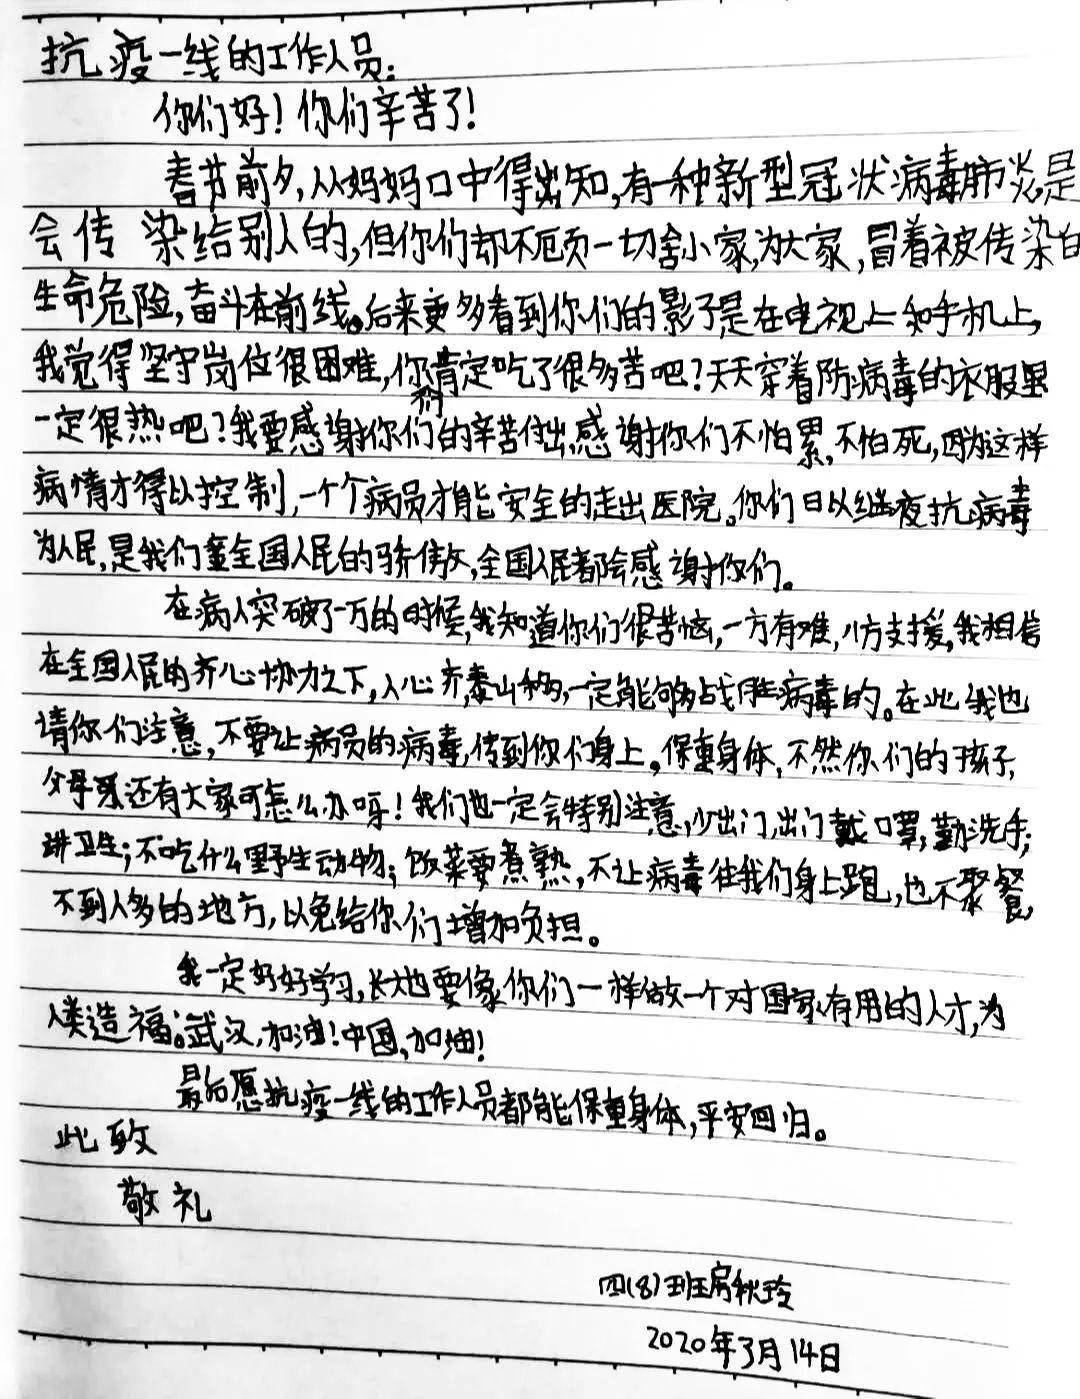 抗疫一线的工作人员:
你们好!你们辛苦了!
春节前夕,从妈妈口中得出知,有一种新型冠状病毒肺炎是
会传染给别人的,但你们却不顾一切舍小家,为大家,冒着被传染的
生命危险,奋斗在前线。后来更多看到你们的影子是在电视上和手机上,
我觉得坚守岗位很困难,你们肯定吃了很多苦吧?天天穿着防病毒的衣服里
一定很热吧?我要感谢你们的辛苦付出,感谢你们不怕累,不怕死,因为这样
病情才得以控制,一个个病员才能安全的走出医院。你们日以继夜抗病毒
为人民,是我们全国人民的骄傲,全国人民都会感谢你们。
在病人突破了一万的时候,我知道你们很苦恼,一方有难,八方支援,我相信
在全国人民的齐心协力之下,人心齐,泰山移,一定能够战胜病毒的。在此我也
请你们注意,不要让病员的病毒,传到你们身上。保重身体,不然你们的孩子,
父母还有大家可怎么办呀!我们也一定会特别注意,少出门,出门戴口罩;勤洗手;
讲卫生;不吃什么野生动物;饭菜要煮熟,不让病毒往我们身上跑,也不聚餐,
不到人多的地方,以免给你们增加负担。
我一定好好学习,长大也要像你们一样做一个对国家有用的人才,为
人类造福。武汉,加油!中国,加油!
最后愿抗疫一线的工作人员都能保重身体,平安回归。
此致
敬礼
四(8)班房秋玲
2020年3月14日